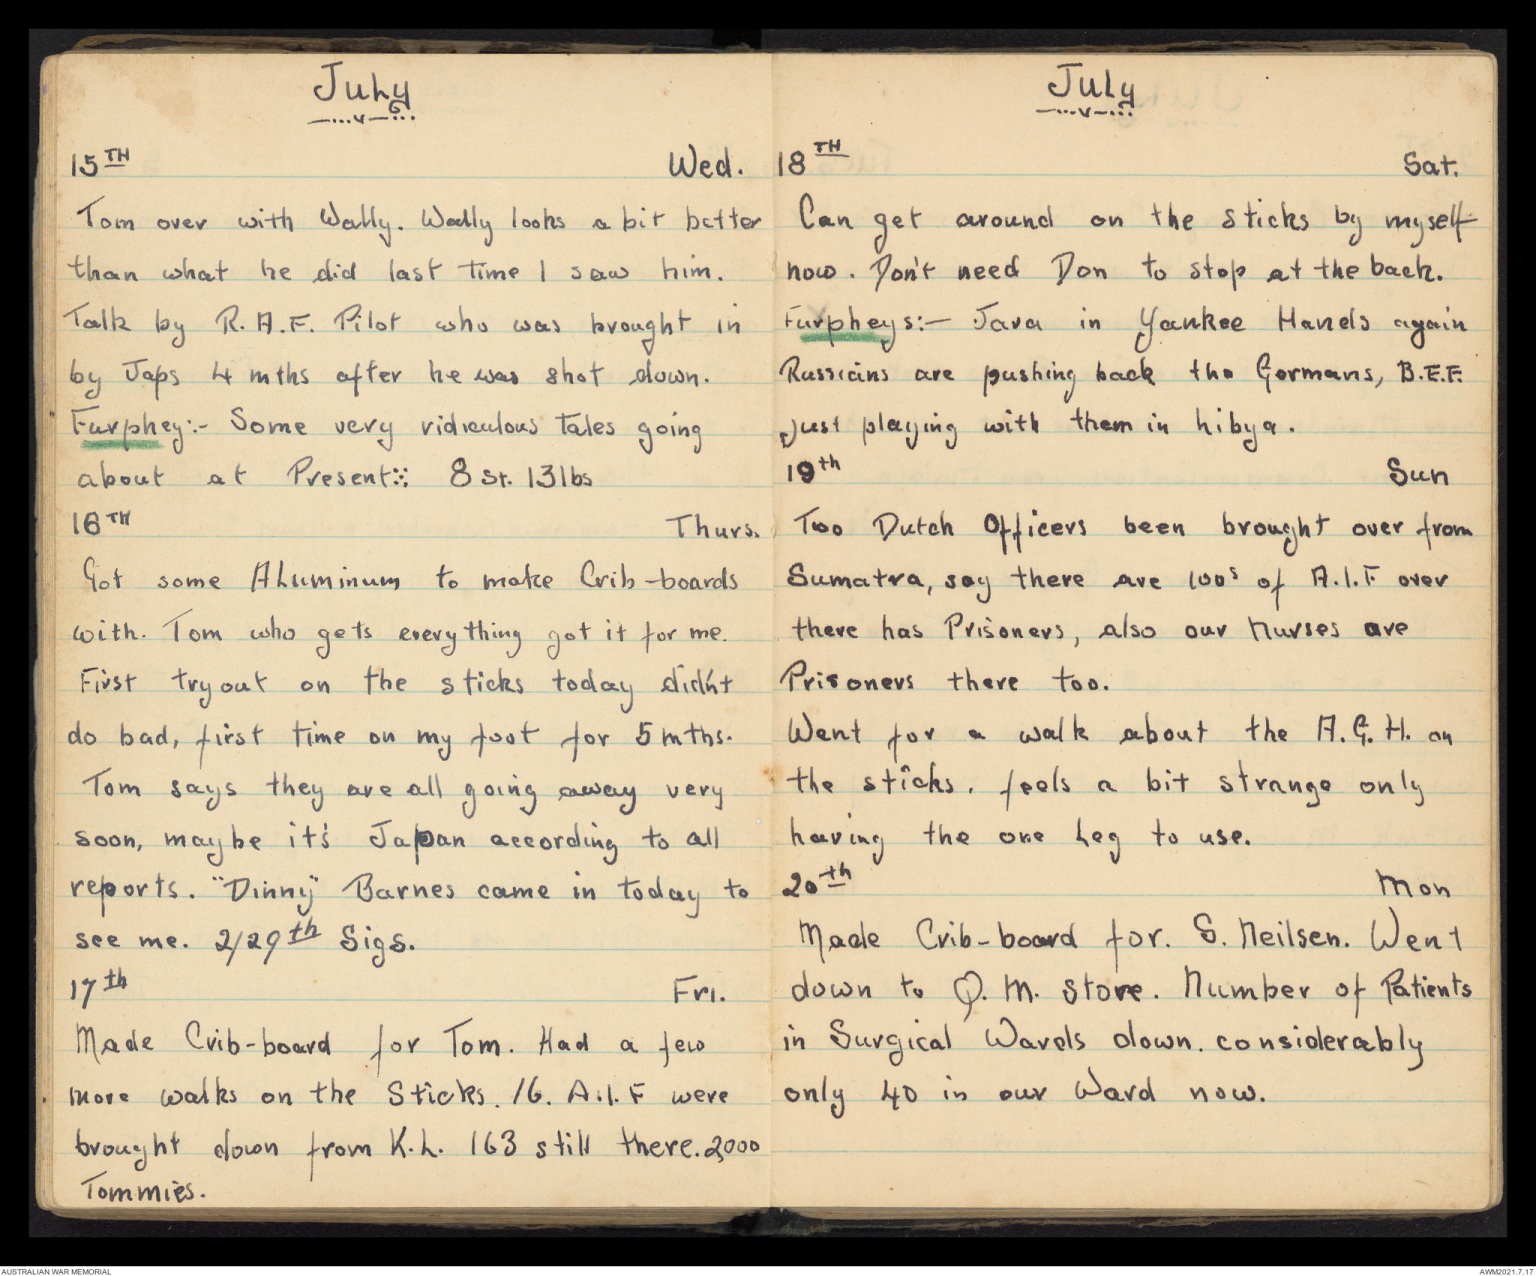 July
15TH Wed.
Tom over with Wally. Wally looks a bit better
than what he did last time I saw him.
Talk by R.A.F. Pilot who was brought in
by Japs 4 mths after he was shot down.
Furphey:- Some very ridiculous Tales going
about at Present:: 8 st. 13 lbs
16TH Thurs.
Got some Aluminum to make Crib-boards
with. Tom who gets everything got it for me.
First tryout on the sticks today didn't
do bad, first time on my foot for 5 mths.
Tom says they are all going away very
soon, maybe it's Japan according to all
reports. "Dinny" Barnes came in today to
see me. 2/29th Sigs.
17th Fri.
Made Crib-board for Tom. Had a few
more walks on the Sticks. 16. A.I.F were
brought down from K.L. 163 still there. 2,000
Tommies.
July
18TH Sat.
Can get around on the sticks by myself
now. Don't need Don to stop at the back.
Furpheys:- Java in Yankee Hands again
Russians are pushing back the Germans, B.E.F.
just playing with them in Libya.
19th Sun
Two Dutch Officers been brought over from
Sumatra, say there are 100s of A.I.F over
there has Prisoners, also our Nurses are
Prisoners there too.
Went for a walk about the A.G.H. on
the sticks. feels a bit strange only
having the one Leg to use.
20th Mon
Made Crib-board for. S. Neilsen. Went
down to Q.M. Store. Number of Patients
in Surgical Wards down. considerably
only 40 in our Ward now.
AUSTRALIAN WAR MEMORIAL AWM2021.7.17